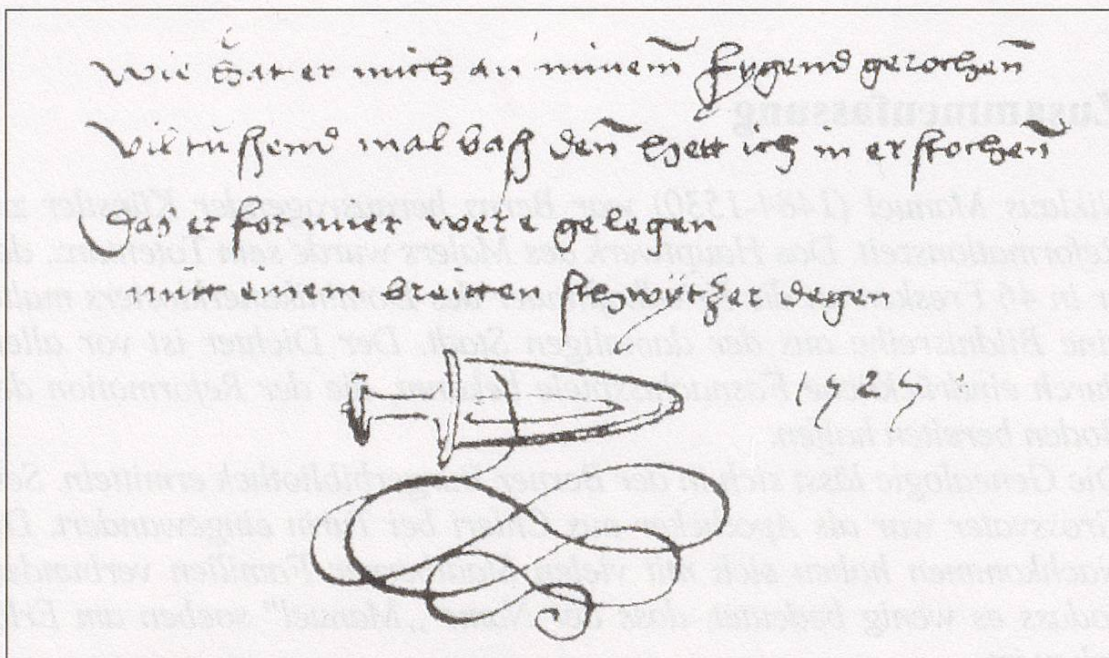 wie hat er mich an minem̄ fygend gerochen̄
vil tusend mal baß den̄ hett ich in erstochen̄
Das er for mier were gelegen
mit einem breitten schwitzer degen
1525